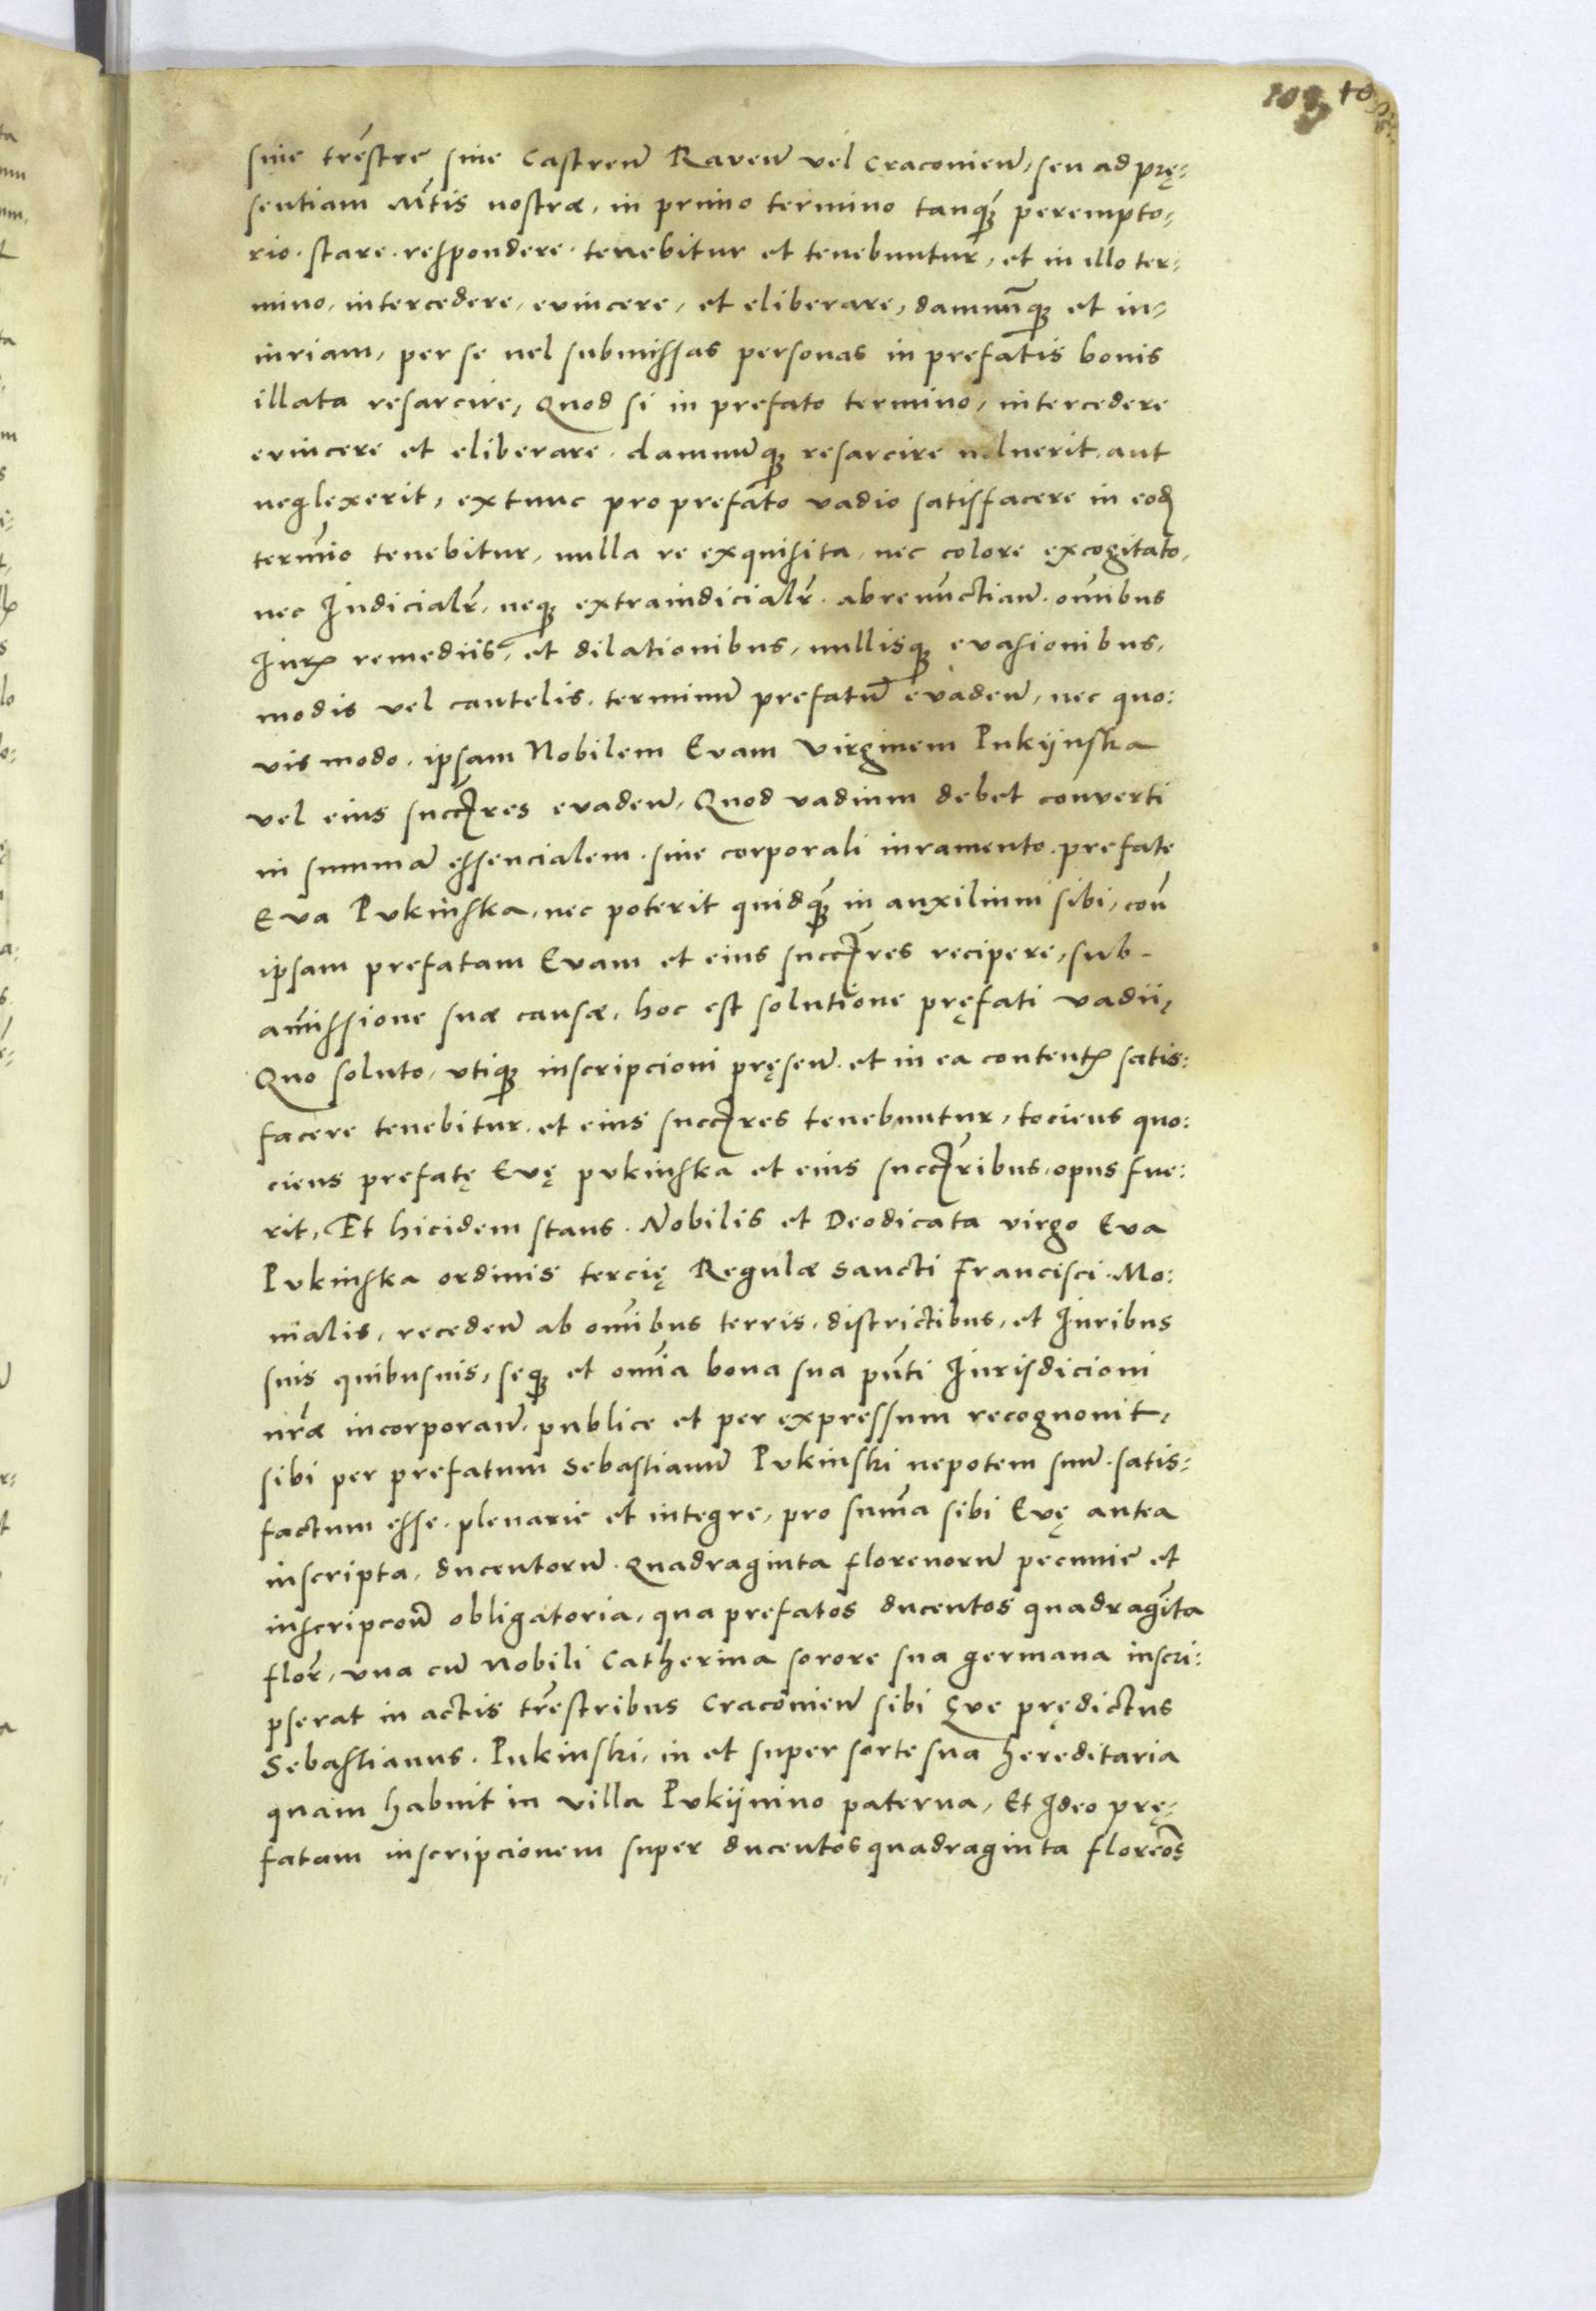 siue tr̃estre siue Castreñ Raveñ vel Cracovieñ, seu ad prę-
sentiam M̃tis nostræ, in primo termino tanq̃ perempto-
rio. stare. respondere. tenebitur et tenebuntur, et in illo ter-
mino, intercedere, evincere, et eliberare, damnũq; et in-
iuriam, per se uel submissas personas in prefatis bonis
illata resarcire, Quod si in prefato termino, intercedere
evincere et eliberare. damnũq; resarcire noluerit. aut
neglexerit, extunc pro prefato vadio satisfacere in eod
termĩo tenebitur, nulla re exquisita, nec colore excogitato,
nec Iudicialr̃, neq; extraiudicialr̃. abrenũctiañ. om̃ibus
Iurꝭ remediis, et dilationibus, nullisq; evasionibus,
modis vel cautelis. terminũ prefatũ evadeñ, nec quo:
vis modo. ipsam Nobilem Evam virginem Pukijnska
vel eius succ̃res evadeñ, Quod vadium debet converti
in summã essencialem. sine corporali iuramento. prefate
Eva Pvkinska, nec poterit quidq̃ in auxilium sibi, coñ
ipsam prefatam Evam et eius succ̃res recipere, sub-
am̃issione suæ causæ, hoc est solutione pręfati vadii,
Quo soluto, utiq; inscripcioni pręseñ. et in ea contentꝭ satis:
facere tenebitur. et eius succ̃res tenebuntur, tociens quo:
ciens prefatę Evę pvkinska et eius succ̃ribus. opus fue:
rit, Et hicidem stans. Nobilis et Deodicata virgo Eva
Pvkinska ordinis tercię Regulæ sancti Francisci. Mo:
nialis, recedeñ ab om̃ibus terris. districtibus, et Iuribus
suis quibusuis, seq; et om̃ia bona sua pñti Iurisdicioni
nr̃æ incorporañ. publice et per expressum recognouit,
sibi per prefatum Sebastianũ Pvkinski nepotem suũ. satis-
factum esse. plenarie et integre, pro sum̃a sibi Evę antea
inscripta, ducentorũ. Quadraginta florenorũ pecunie et
inscripcoñ obligatoria, qua prefatos ducentos quadragĩta
flor̃, vna cũ Nobili Catherina sorore sua germana inscri:
pserat in actis tr̃estribus Cracovieñ sibi Eve prędictus
Sebastianus. Pukinski, in et super sorte sua hereditaria
quam habuit in villa Pvkijnino paterna, Et Ideo prę-
fatam inscripcionem super ducentos quadraginta floreõs